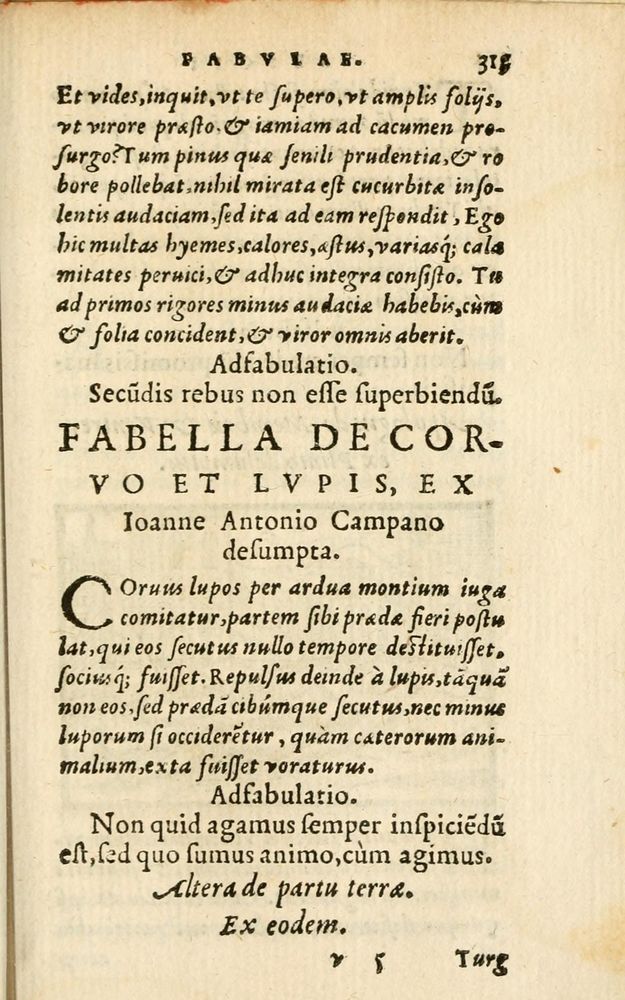 FABVLAE. 315
Et vides, inquit, vt te supero, vt amplis folijs,
vt virore præsto. & iamiam ad cacumen pro-
surgo? Tum pinus quæ senili prudentia, & ro
bore pollebat, nihil mirata est cucurbitæ inso-
lentis audaciam, sed ita ad eam respõdit, Ego
hic multas hyemes, calores, æstus, variasq́; cala
mitates peruici, & adhuc integra consisto. Tu
ad primos rigores minus audaciæ habebis, cùm
& folia concident, & viror omnis aberit.
Adfabulatio.
Secũdis rebus non esse superbiendũ.
FABELLA DE COR-
VO ET LVPIS, EX
Ioanne Antonio Campano
desumpta.
COruus lupos per ardua montium iuga
comitatur, partem sibi prædæ fieri postu
lat, qui eos secutus nullo tempore destituisset.
sociusq́; fuisset. Repulsus deinde à lupis, tãquã
non eos, sed prædã cibúmque secutus, nec minus
luporum si occiderẽtur, quàm cæterorum ani-
malium, exta fuisset voraturus.
Adfabulatio.
Non quid agamus semper inspiciẽdũ
est, sed quo sumus animo, cùm agimus.
Altera de partu terræ.
Ex eodem.
v 5 Turg